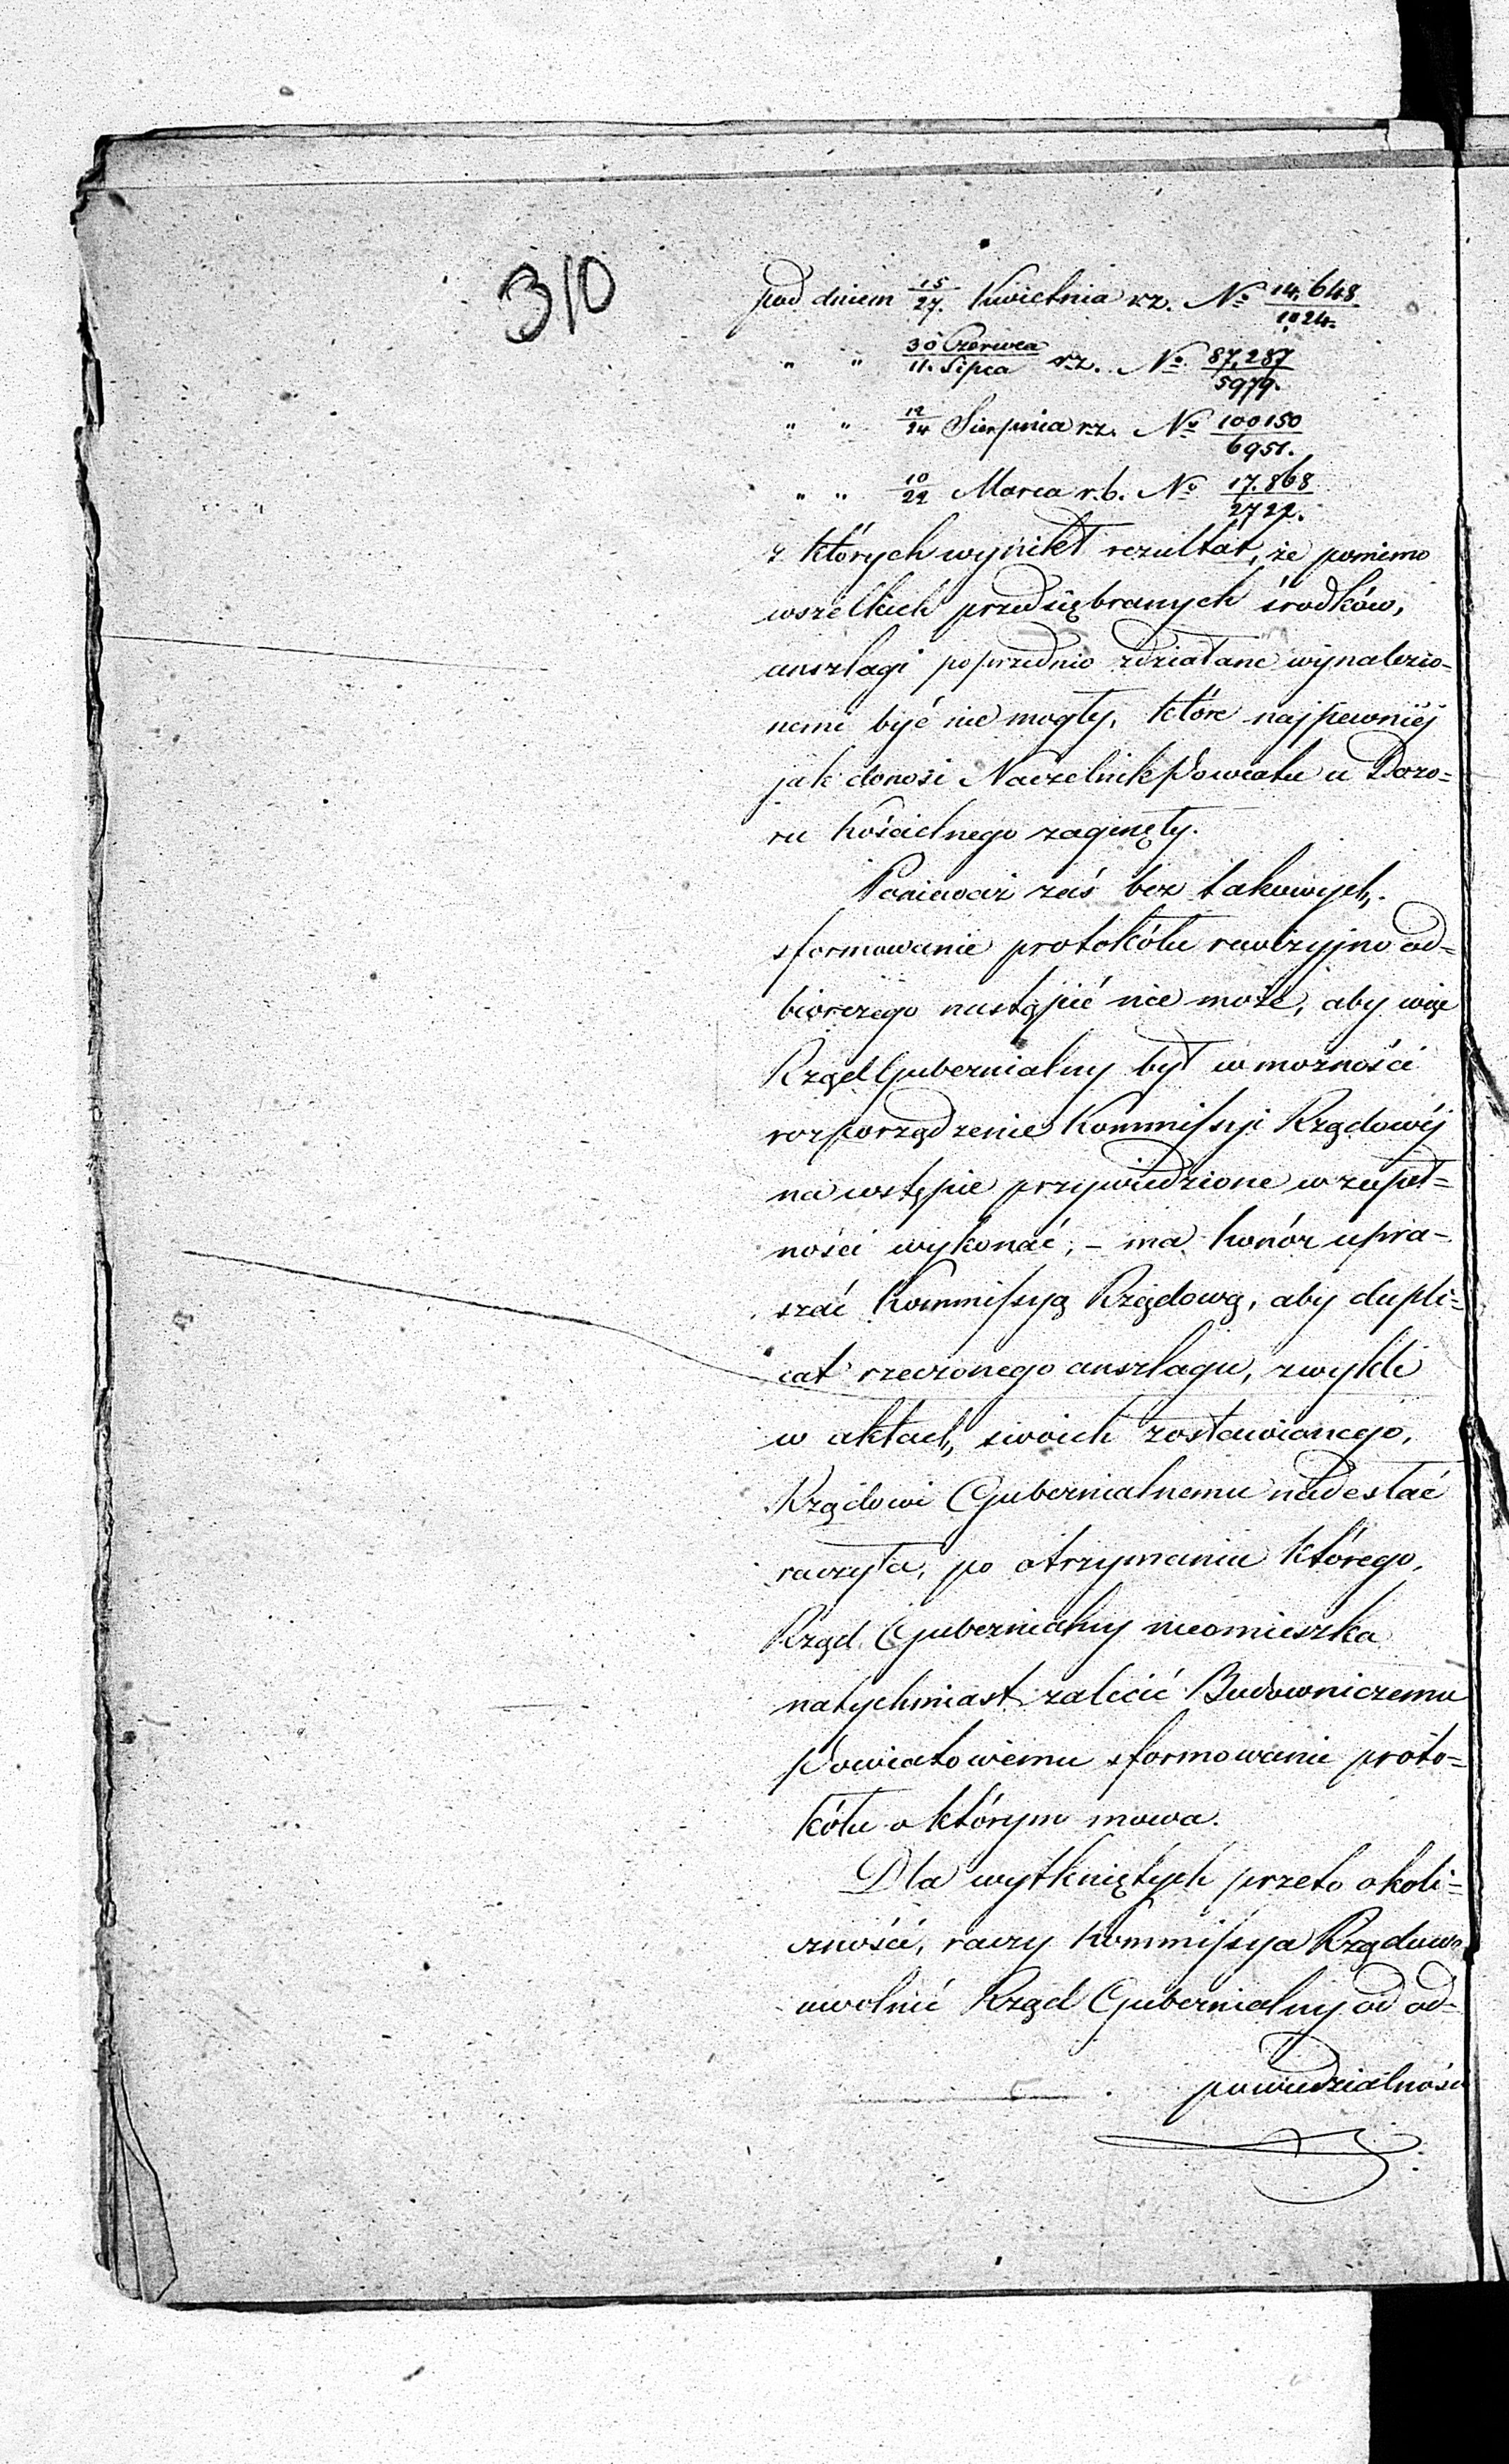 310
pod dniem 15/27. Kwietnia r.z. No 14,648/1024.
" " 30 Czerwca/11. Lipca r.z. No 87,287/5979.
" " 12/24 Sierpnia r.z. No 100150/6951.
" " 10/22 Marca r.b. No 17.868/2722.
z których wynikł rezultat, że pomimo
wszelkich przedsiębranych środków,
anszlagi poprzednio zdziałane wynalezio-
nemi być nie mogły, które najpewniej
jak donosi Naczelnik Powiatu u Dozo=
ru Kościelnego zaginęły.
Ponieważ zaś bez takowych,
sformowanie protokółu rewizyjno od=
biorczego nastąpić nie może, aby więc
Rząd Gubernialny był w możności
rozporządzenie Kommissyi Rządowéj
na wstępie przywiedzione w zupeł=
ności wykonać, – ma honór upra-
szać Kommissyą Rządową, aby dupli=
cat rzeczonego anszlagu, zwykle
w aktach swoich zostawionego,
Rządowi Gubernialnemu nadesłać
raczyła, po otrzymaniu którego,
Rząd Gubernialny nieomieszka
natychmiast zalecić Budowniczemu
Powiatowemu sformowanie proto=
kółu o którym mowa.
Dla wytkniętych przeto okoli=
czności, raczy Kommissya Rządowa
uwolnić Rząd Gubernialny od od=
powiedzialności